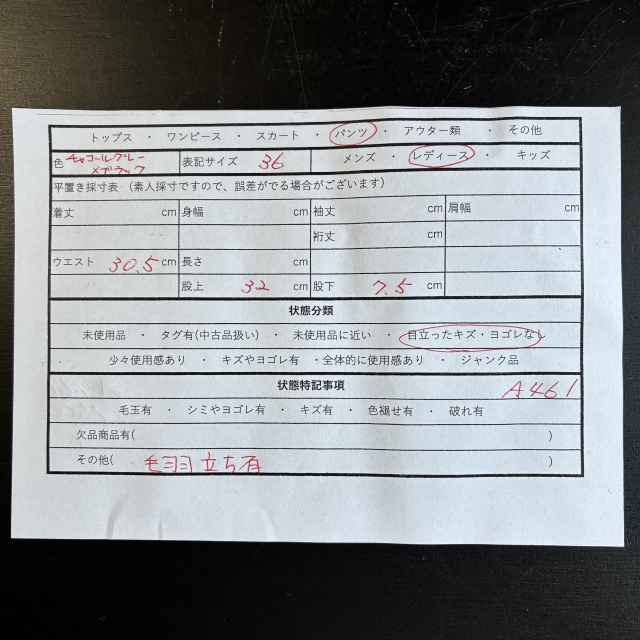 トップス ・ ワンピース ・ スカート ・ パンツ ・ アウター類 ・ その他
色 チャコールグレー 表記サイズ 36 メンズ ・ レディース ・ キッズ
×ブラック
平置き採寸表 (素人採寸ですので、誤差がでる場合がございます)
着丈 cm 身幅 cm 袖丈 cm 肩幅 cm
裄丈 cm
ウエスト 30.5 cm 長さ cm
股上 32 cm 股下 7.5 cm
状態分類
未使用品 ・ タグ有(中古品扱い) ・ 未使用品に近い ・ 目立ったキズ・ヨゴレなし
少々使用感あり ・ キズやヨゴレ有 ・全体的に使用感あり ・ ジャンク品
状態特記事項 A461
毛玉有 ・ シミやヨゴレ有 ・ キズ有 ・ 色褪せ有 ・ 破れ有
欠品商品有( )
その他( 毛羽立ち有 )